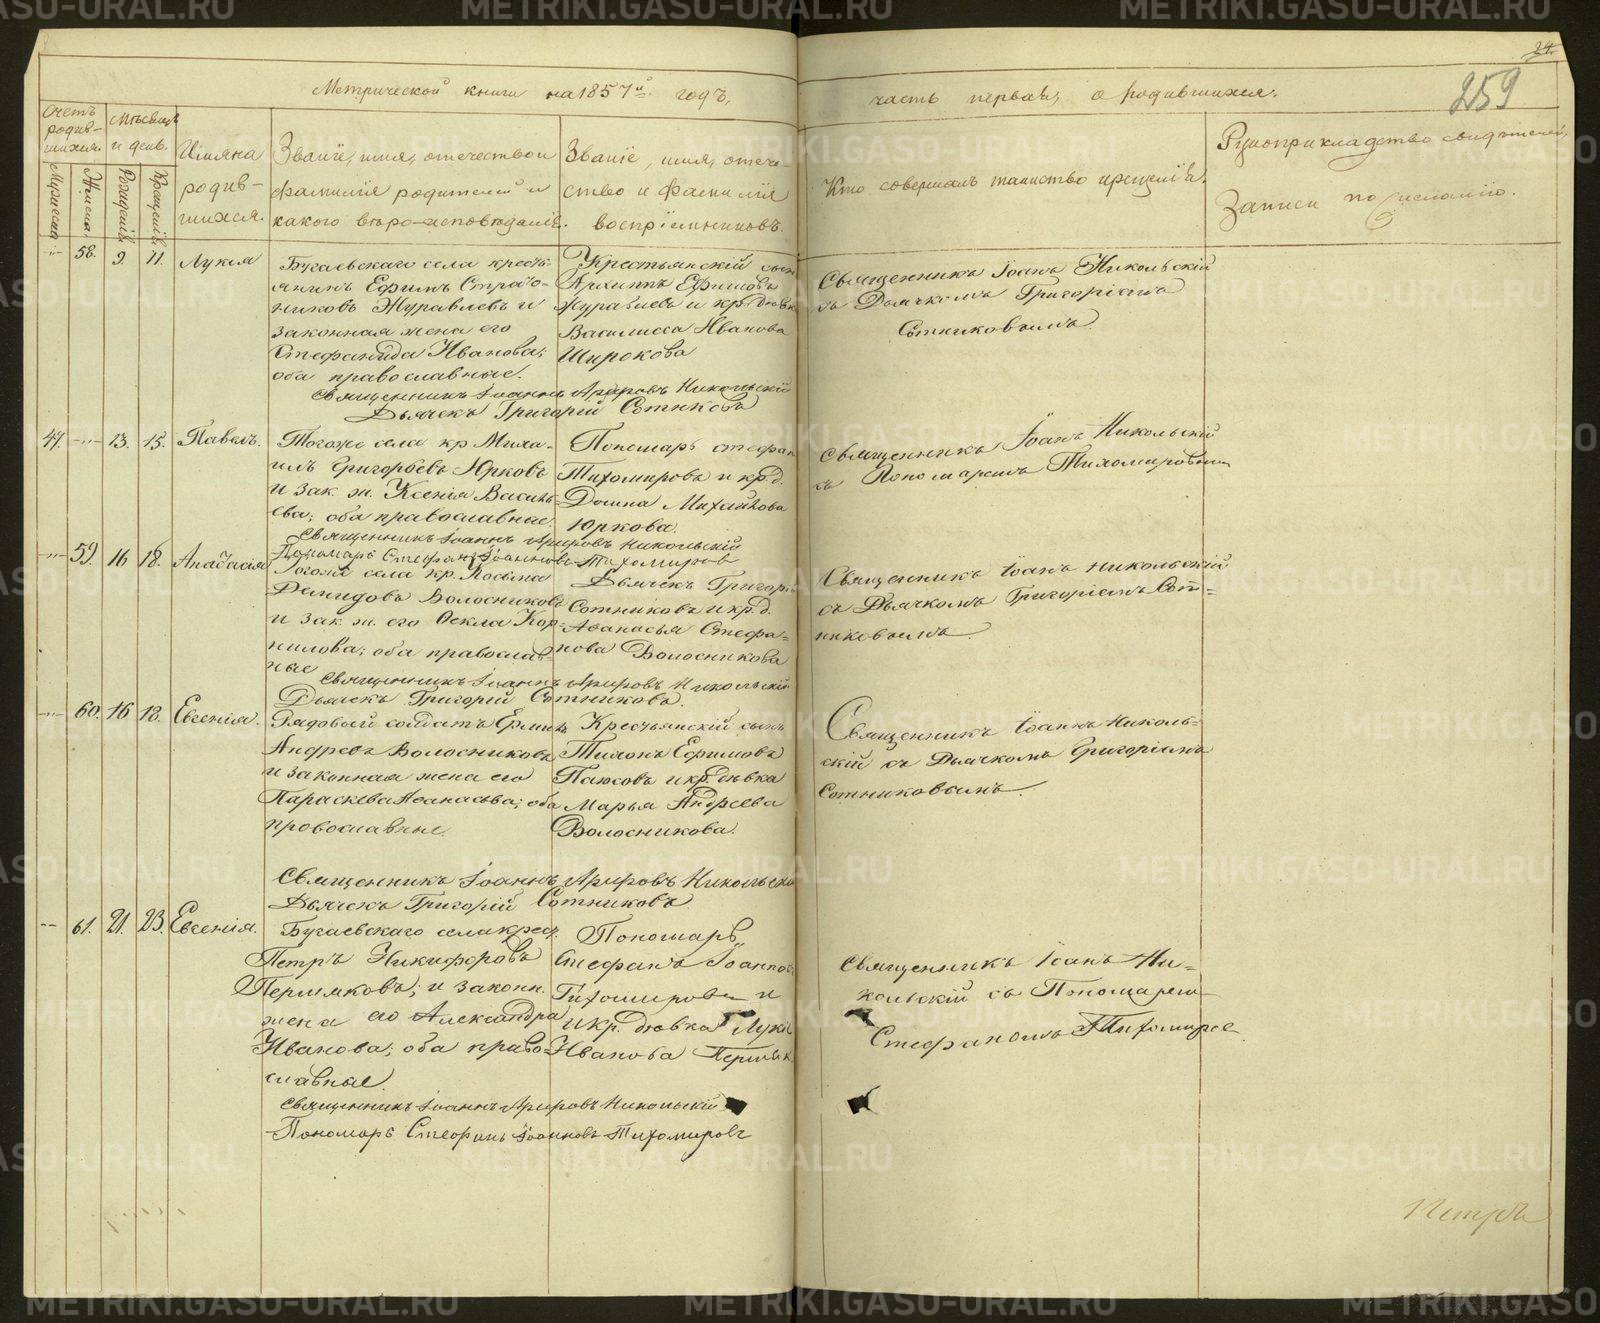 24.
259
Метрической книги на 1857й годъ,
часть первая, о родившихся.
Счетъ родив-шихся.
Мѣсяцъ и день.
Имяна родив-шихся.
Званіе, имя, отечество и
фамилія родителей и
какого вѣро-исповѣданія.
Званіе, имя, отече-
ство и фамилія
воспріемниковъ.
Кто совершалъ таинство крещенія.
Рукоприкладство свидѣтелей
Записи по желанію.
Мужеска.
Женска.
Рожденія.
Крещенія.
58. 9. 11. Лукія
Бугаевскаго села кресть-
янинъ Ефимъ
Журавлевъ и
законная жена его
Стефанида Иванова;
оба православные.
Крестьянскій сынъ
Архиппъ Ефимовъ
Журавлевъ и кр. дѣвка
Василисса Иванова
Широкова
Священникъ Іоаннъ Никольскій
съ Дьячкомъ Григоріемъ
Сотниковымъ.
Священникъ Іоаннъ Никольскій
Дьячекъ Григорій Сотниковъ
47. 13. 15. Павелъ.
Тогоже села кр. Миха-
илъ Григорьевъ Юрковъ
и зак. ж. Ксенія Василь-
ева; оба православные.
Пономарь Стефанъ
Тихомировъ и кр. д.
Домна Михайлова
Юркова.
Священникъ Іоаннъ Никольскій
съ Пономаремъ Тихомировымъ
Священникъ Іоаннъ Никольскій
Пономарь Стефанъ Іоанновъ Тихомировъ
59. 16 18. Анастасія
Тогоже села кр. Козьма
Давидовъ Волосниковъ
и зак. ж. его Ѳекла Кор-
нилова; оба православ-
ные
Дьячекъ Григорій
Сотниковъ и кр. д.
Аѳанасья Стефа-
нова Волосникова
Священникъ Іоаннъ Никольскій
съ Дьячкомъ Григоріемъ Сот-
никовымъ.
Священникъ Іоаннъ Никольскій
Дьячекъ Григорій Сотниковъ.
60. 16 18. Евгенія.
Рядовой солдатъ
Андреевъ Волосниковъ
и законная жена его
Параскева Аѳанасьева; оба
провославные.
Крестьянскій сынъ
Тихонъ Ефимовъ
и кр. дѣвка
Марья Андреева
Волосникова.
Священникъ Іоаннъ Николь-
скій съ Дьячкомъ Григоріемъ
Сотниковымъ.
Священникъ Іоаннъ Никольскій
Дьячекъ Григорій Сотниковъ
61. 21. 23. Евгенія.
Бугаевскаго села крест.
Петръ Никифоровъ
Пермяковъ; и законн.
жена его Александра
Иванова; оба право-
славные.
Пономарь
Стефанъ Іоанновъ
Тихомировъ и
и кр. дѣвка Лукія
Иванова Пермяк
Священникъ Іоаннъ Ни-
кольскій съ Пономаремъ
Стефаномъ Тихомиров
Священникъ Іоаннъ Никольскій
Пономарь Стефанъ Іоанновъ Тихомировъ
METRIKI.GASO-URAL.RU